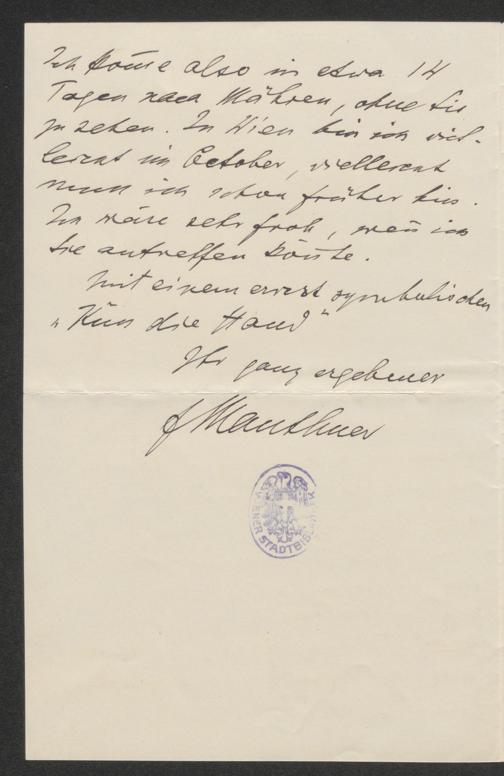 Ich kom̄e also in etwa 14
Tagen nach Mähren, ohne Sie
zu sehen. In Wien bin ich viel-
leicht im October, vielleicht
muss ich schon früher hin.
Ich wäre sehr froh, wen̄ ich
Sie antreffen kön̄te.
Mit einem ernst symbolischen
„Küss die Hand"
Ihr ganz ergebener
F Mauthner
WIENER STADTBIBLIOTHEK